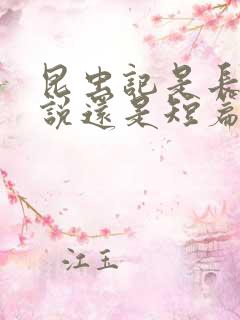 昆虫記是長
說還是短篇
江玉